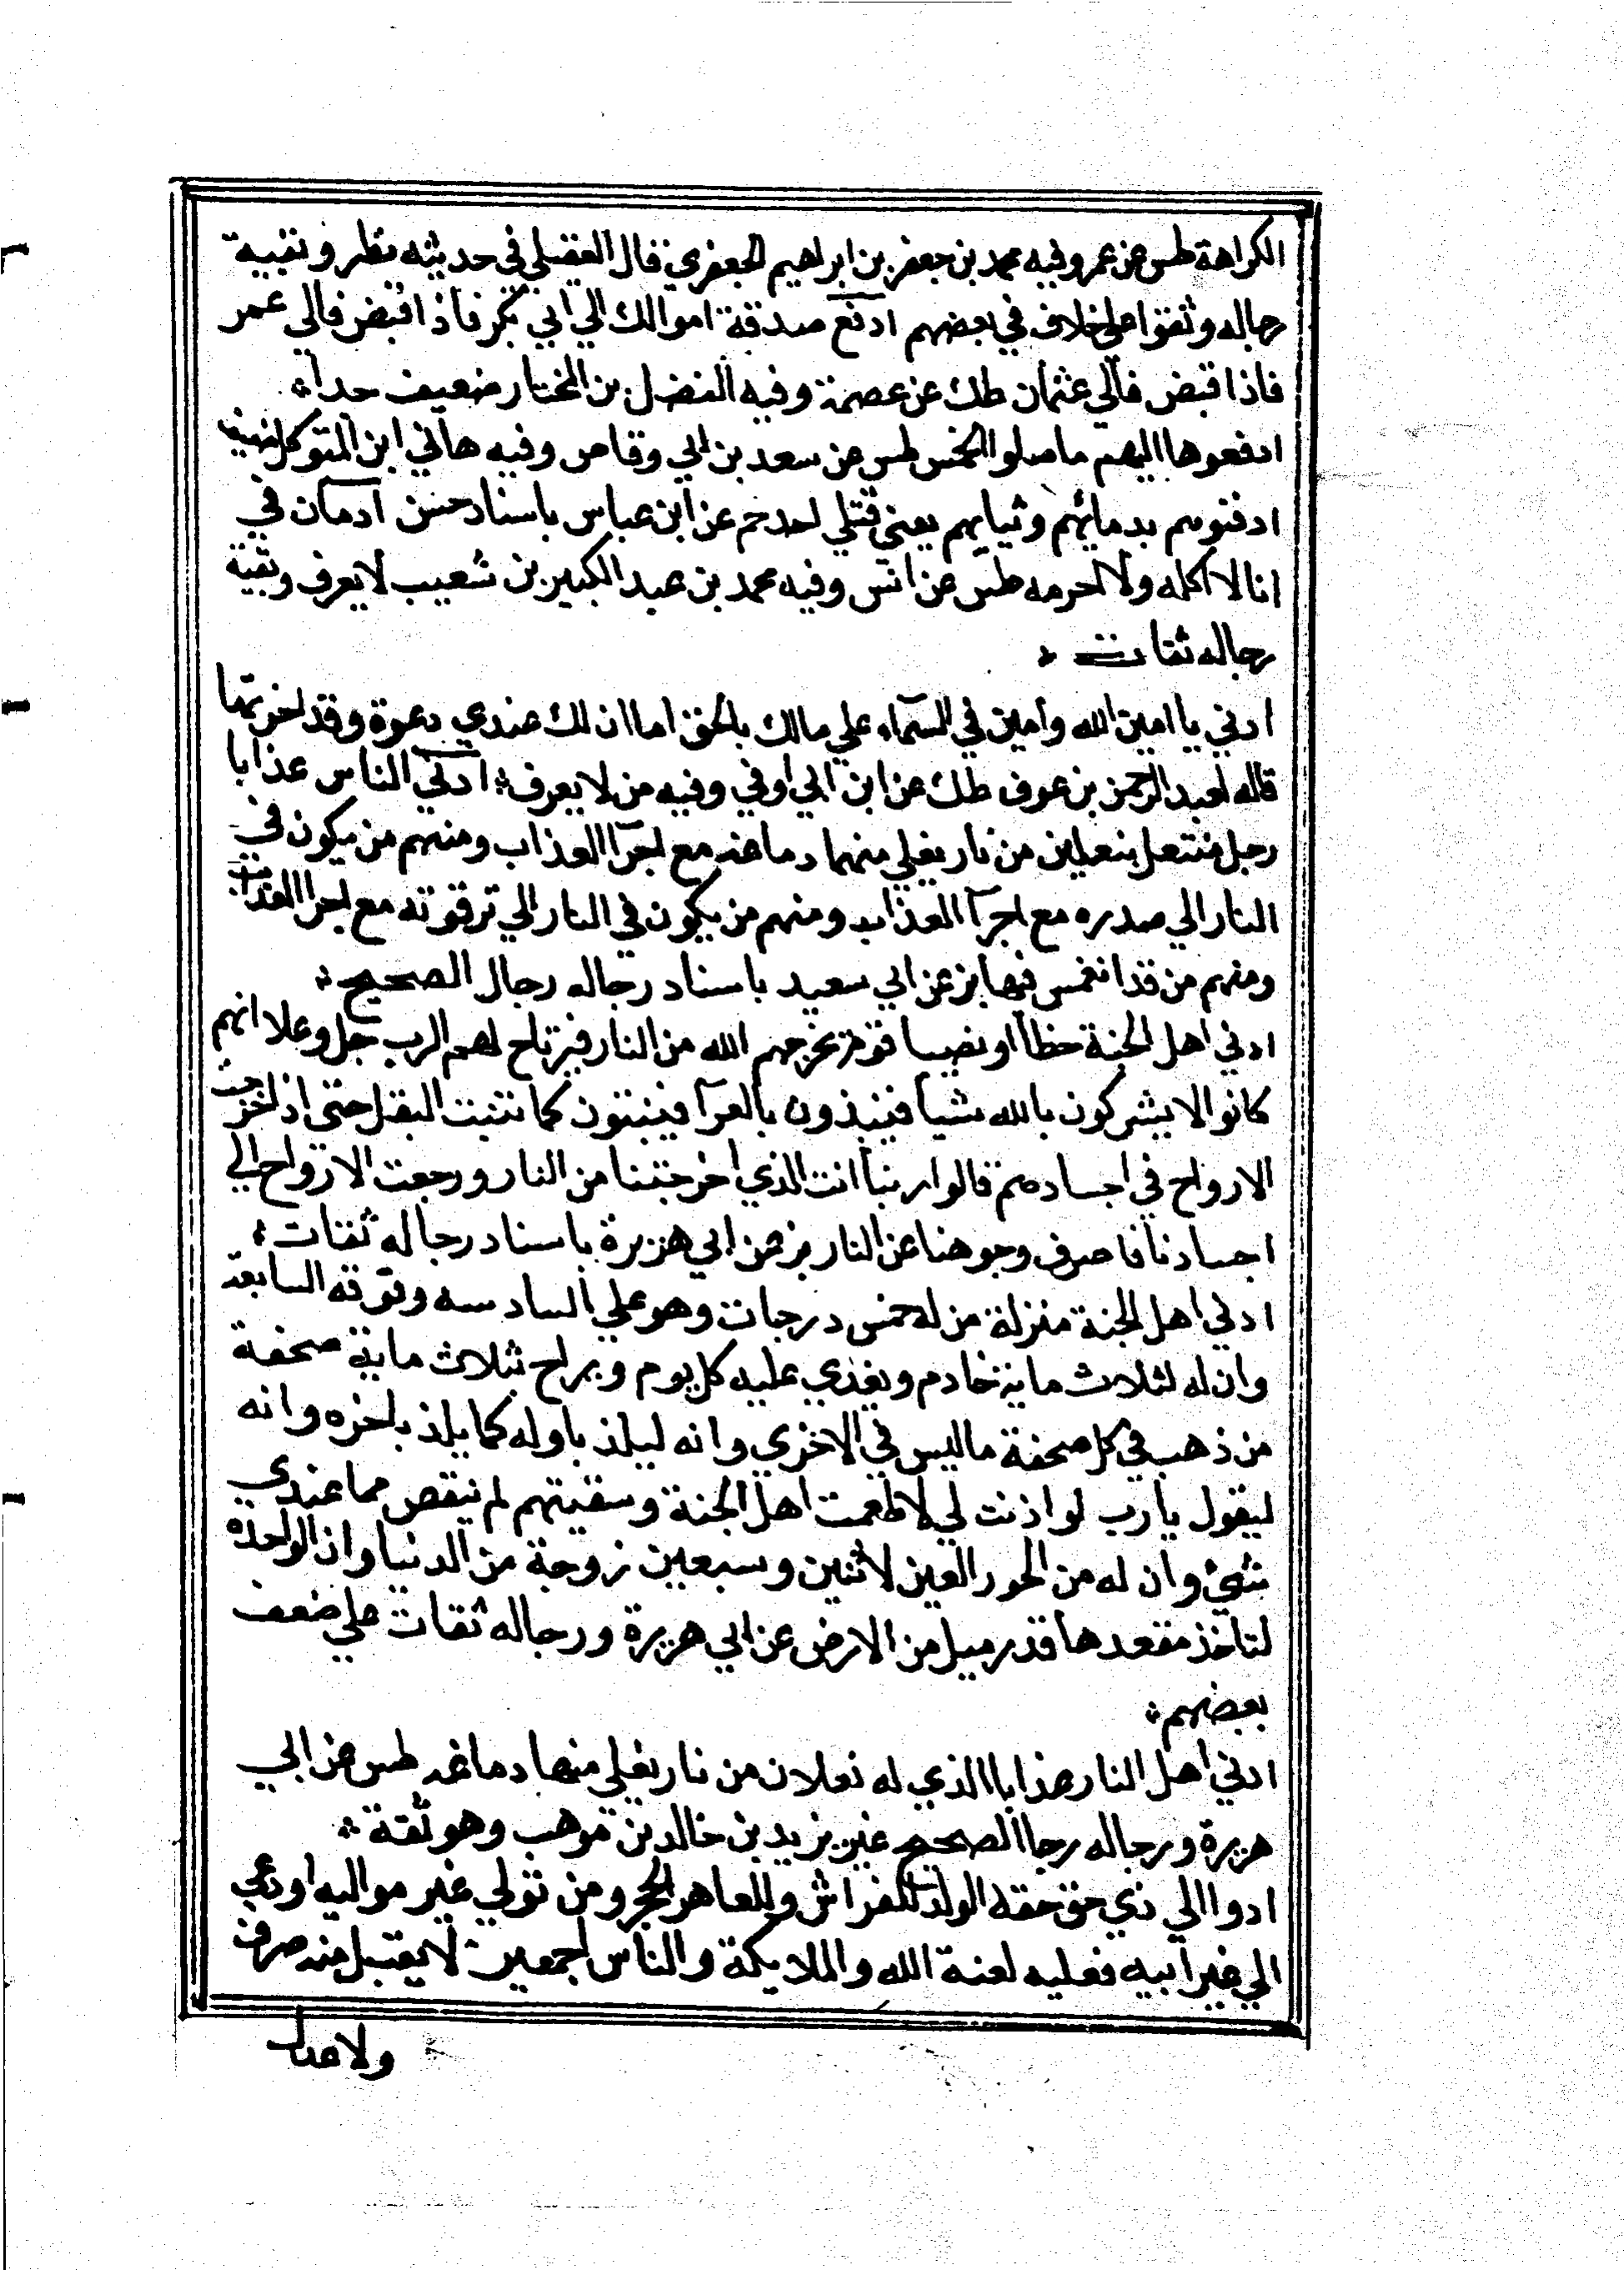 الكراهة طس عن عمر وفيه محمد بن جعفر بن ابراهيم الجعفري قال العقيلي في حديثه نظر وبقية
رجاله وثقوا علي خلاف في بعضهم ادفع صدقة اموالك الي ابي بكر فاذا قبض فالي عمر
فاذا قبض فالي عثمان طك عن عصمة وفيه الفضل بن المختار ضعيف جدا
ادفعوها اليهم ما صلوا الخمس طس عن سعد بن ابي وقاص وفيه هاني ابن المتوكل ضعيف
ادفنوهم بدمائهم وثيابهم يعني قتلي احد حم عن ابن عباس باسناد حسن ادمان في
انا لا اكله ولا احرمه طس عن انس وفيه محمد بن عبد الكبير بن شعيب لا يعرف وبقية
رجاله ثقات
ادني يا امين الله وامين في السماء علي مالك بالحق اما ان لك عندي دعوة وقد اخرتها
قاله لعبد الرحمن بن عوف طك عن ابن ابي اوفي وفيه من لا يعرف ادني الناس عذابا
رجل منتعل بنعلين من نار يغلي منهما دماغه مع اجرا العذاب ومنهم من يكون في
النار الي صدره مع اجرا العذاب ومنهم من يكون في النار الي ترقوته مع اجرا العذاب
ومنهم من قد انغمس فيها بز عن ابي سعيد باسناد رجاله رجال الصحيح
ادني اهل الجنة حظا او نصيبا قوم يخرجهم الله من النار فيرتاح لهم الرب جل وعلا انهم
كانوا لا يشركون بالله شيا فينبذون بالعرا فينبتون كما تنبت البقل حتي اذا خرجت
الارواح في اجسادهم قالوا ربنا انت الذي اخرجتنا من النار ورجعت الارواح الي
اجسادنا فاصرف وجوهنا عن النار بز عن ابي هريرة باسناد رجاله ثقات
ادني اهل الجنة منزلة من له خمس درجات وهو علي السادسه وفوقه السابعة
وان له لثلاث ماية خادم ويغذي عليه كل يوم ويراح بثلاث ماية صحفة
من ذهب في كل صحفة ما ليس في الاخري وانه ليلذ باوله كما يلذ باخره وانه
ليقول يا رب لو اذنت لي لاطعمت اهل الجنة وسقيتهم لم ينقص مما عندي
شئ وان له من الحور العين لاثنين وسبعين زوجة من الدنيا وان الواحده
لتاخذ مقعدها قدر ميل من الارض عن ابي هريرة ورجاله ثقات علي ضعف
بعضهم
ادني اهل النار عذابا الذي له نعلان من نار يغلي منها دماغه طس عن ابي
هريرة ورجاله رجا الصحيح غير يزيد بن خالد بن موهب وهو ثقة
ادوا الي ذي حق حقه الولد للفراش وللعاهر الحجر ومن تولي غير مواليه او دعي
الي غير ابيه فعليه لعنة الله والملايكة والناس اجمعين لا يقبل منه صرف
ولا عدل